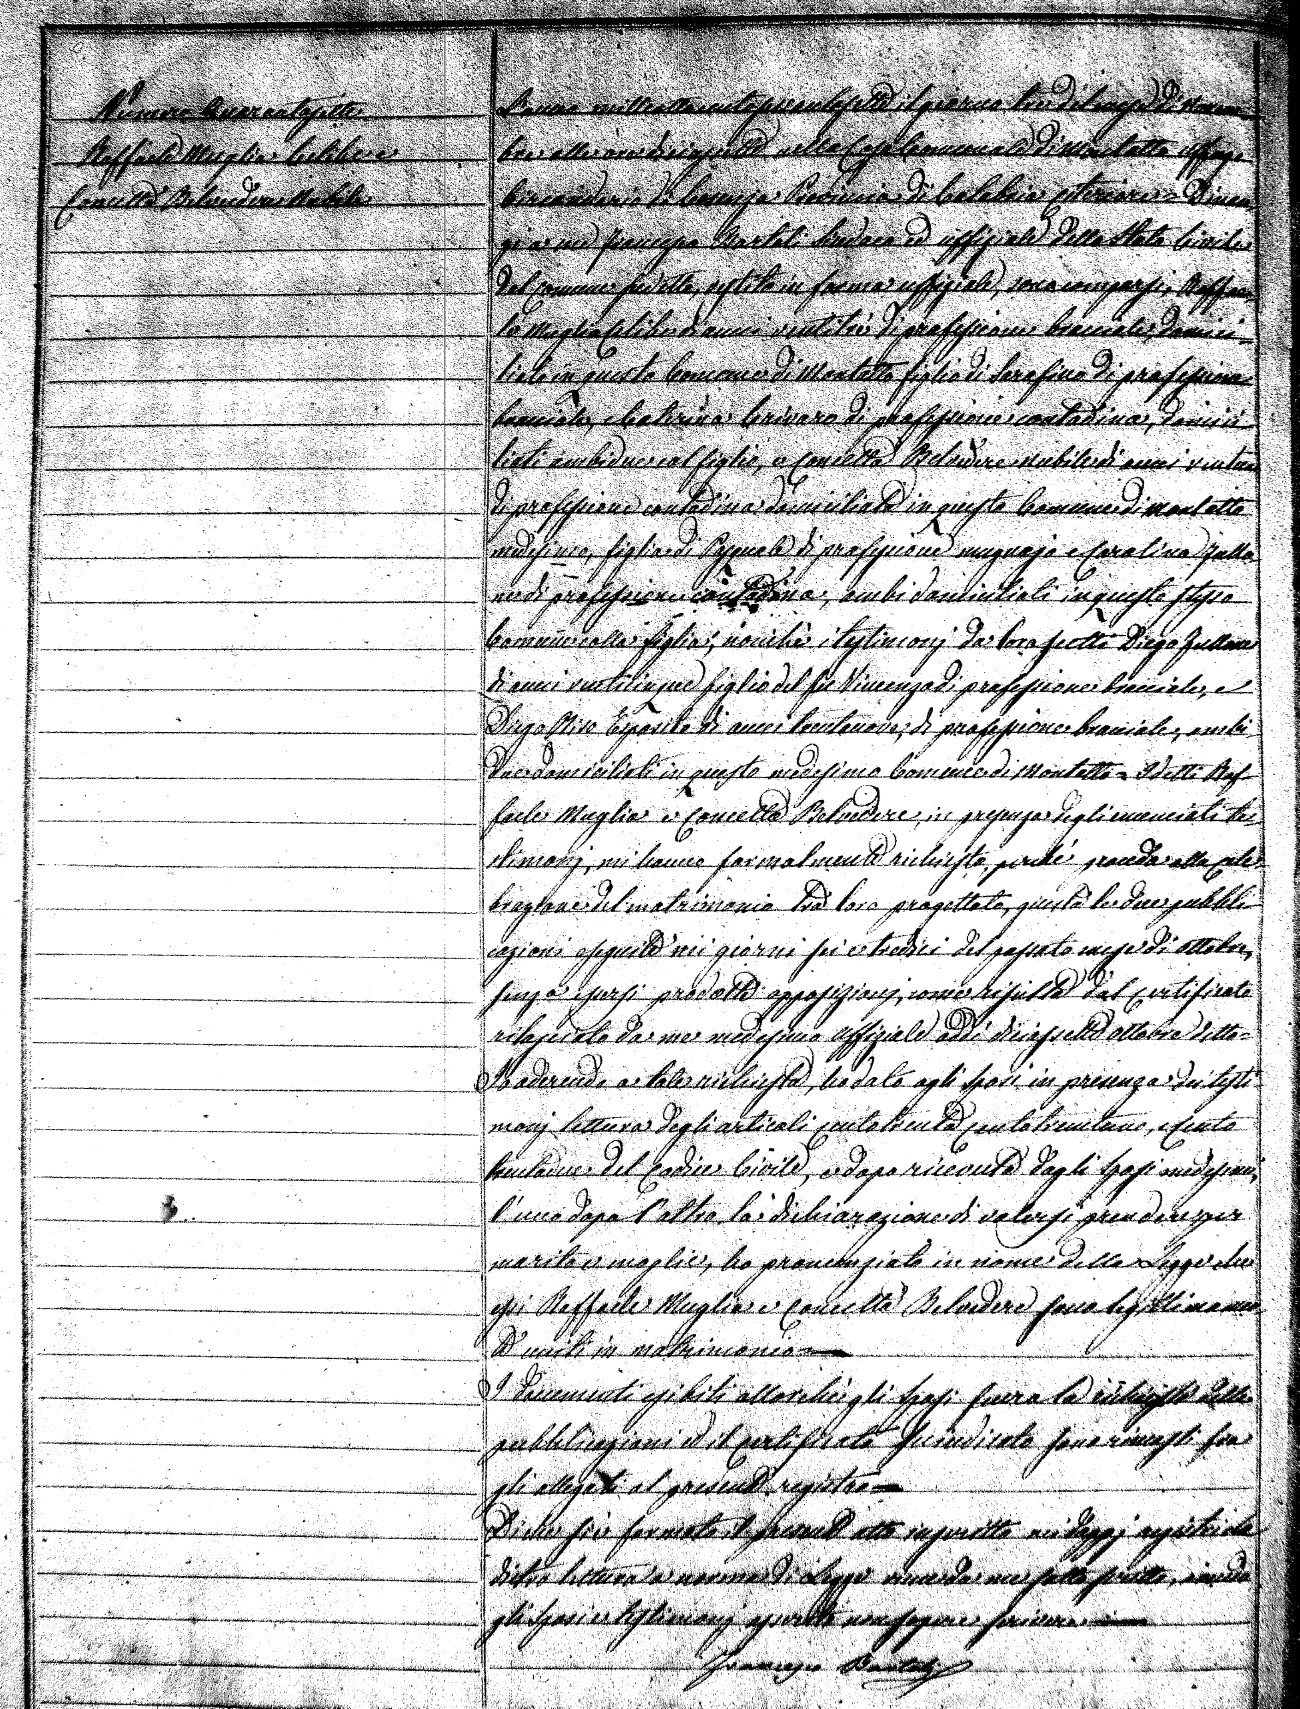 Numero Quarantasette
Raffaele Muglia Celibe e
Concetta Belvedere Nubile
L'anno mille ottocento sessantasette il giorno tre del mese di Novem-
bre alle ore diciassette nella Casa Comunale di Montalto Uffugo
Circondario di Cosenza Provincia di Calabria Citeriore = Dinan-
zi a me Francesco Sindaco ed uffiziale dello Stato Civile
del Comune sudetto, vestito in forma uffiziale, sono comparsi, Raffae-
le Muglia Celibe di anni ventitrè di professione bracciale, domici-
liato in questo Comune di Montalto figlio di Serafino di professione
bracciale, e Caterina di professione contadina, domici-
liati ambidue col figlio, e Concetta Belvedere nubile di anni
di professione contadina domiciliata in questo Comune di Montalto
medesimo, figlia di Pasquale di professione mugnajo e Carolina Zullo
ne di professione contadina, ambi domiciliati in questo stesso
Comune colla figlia; nonchè i testimonj da loro scelti Diego Zullone
di anni venticinque figlio del fu Vincenzo di professione bracciale, e
Diego Esposito di anni trentanove, di professione bracciale, ambi
due domiciliati in questo medesimo Comune di Montalto = I detti Raf-
faele Muglia e Concetta Belvedere, in presenza degli enunciati tes-
timonj, mi hanno formalmente richiesto, perchè proceda alla cele-
brazione del matrimonio tra loro progettato, giusta le due pubbli
cazioni eseguite nei giorni sei e tredici del passato mese di ottobre,
senza esersi prodotte opposizioni, come risulta dal certificato
rilasciato da me medesimo Uffiziale addì diciassette ottobre detto =
Io aderendo a tale richiesta, ho dato agli sposi in presenza dei testi
monj lettura degli articoli centotrenta centotrentuno, e cento
trentadue del Codice Civile, e dopo ricevuta dagli sposi medesimi,
l'uno dopo l'altro, la dichiarazione di volersi prendere per
marito e moglie, ho pronunziato in nome della Legge che
essi Raffaele Muglia e Concetta Belvedere sono legittimamen
te uniti in matrimonio =
I documenti esibiti allorchè gli sposi fecero la richiesta delle
pubblicazioni ed il certificato suindicato sono rimasti fra
gli allegati al presente registro =
Di che si è formato il presente atto inscritto nei doppj registri che
dietro lettura a norma di Legge viene da me sottoscritto, avendo
gli sposi e testimonj asserito non sapere scrivere =
Francesco